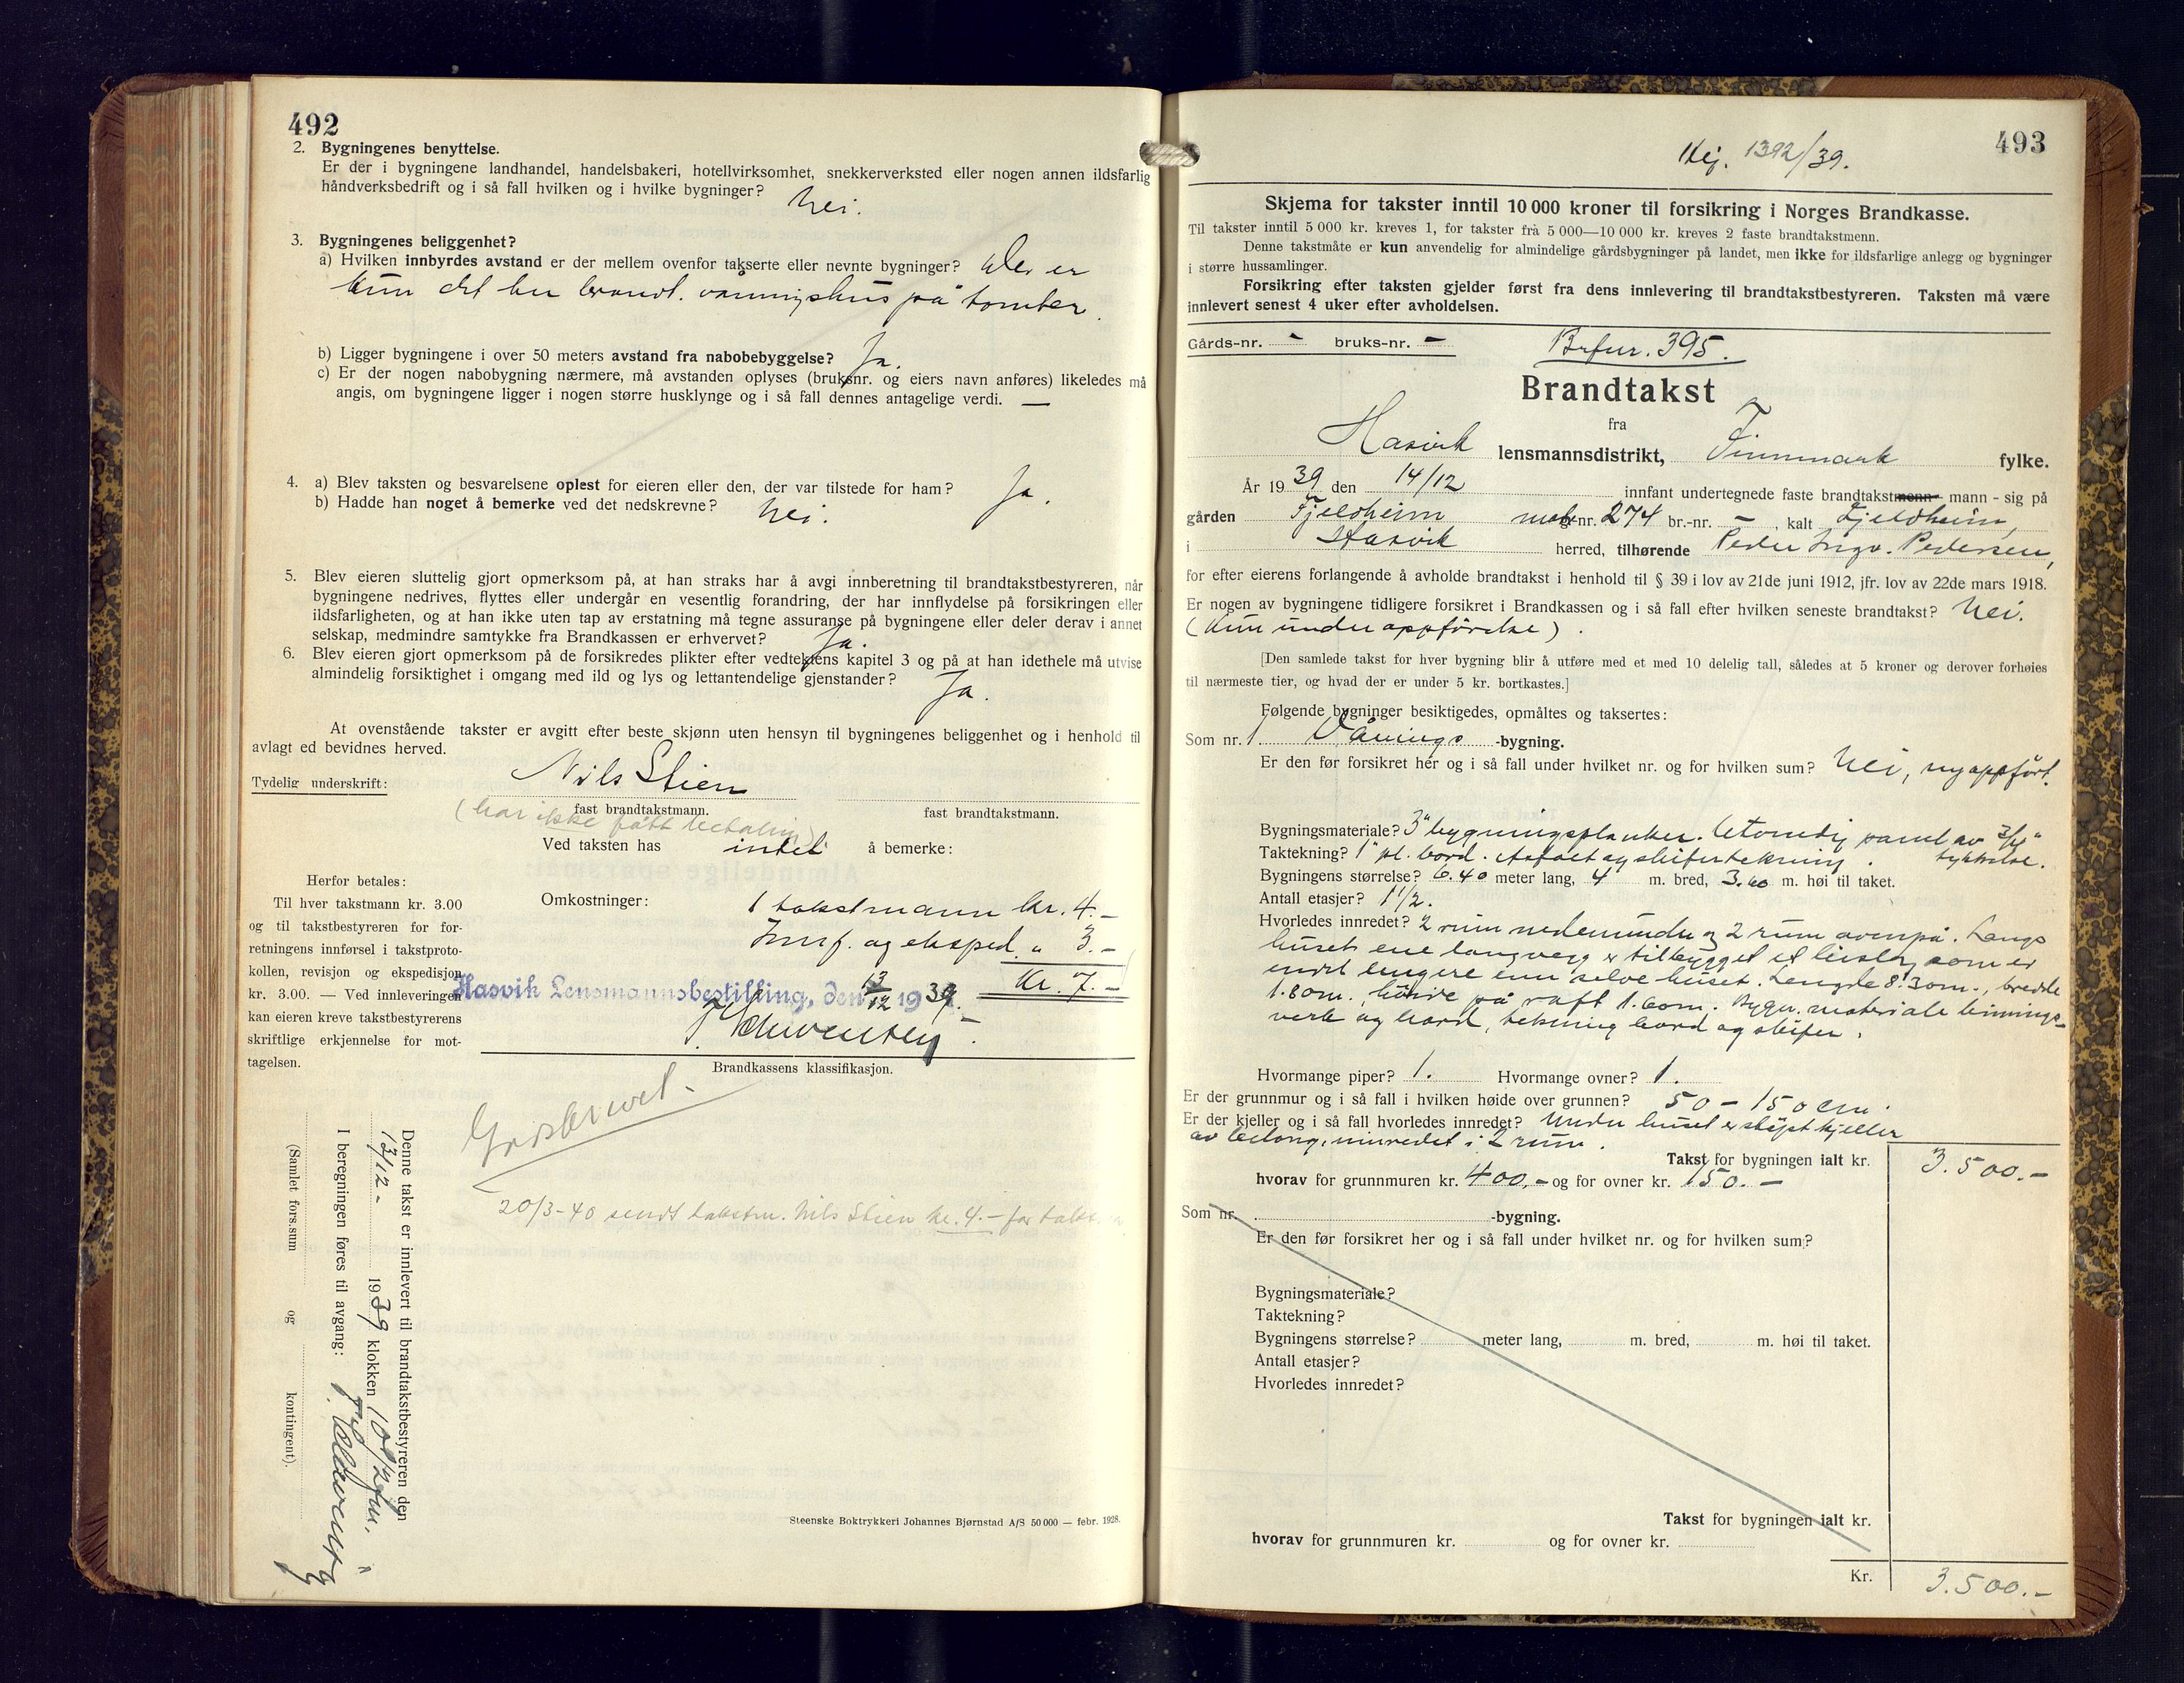 492
2. Bygningenes benyttelse.
Er der i bygningene landhandel, handelsbakeri, hotellvirksomhet, snekkerverksted eller nogen annen ildsfarlig
håndverksbedrift og i så fall hvilken og i hvilke bygninger? Nei.
3. Bygningenes beliggenhet?
a) Hvilken innbyrdes avstand er der mellem ovenfor takserte eller nevnte bygninger? Der er
kun det her brandt. våningshus på tomten.
b) Ligger bygningene i over 50 meters avstand fra nabobebyggelse? Ja.
c) Er der nogen nabobygning nærmere, må avstanden oplyses (bruksnr. og eiers navn anføres) likeledes må
angis, om bygningene ligger i nogen større husklynge og i så fall dennes antagelige verdi. —
4. a) Blev taksten og besvarelsene oplest for eieren eller den, der var tilstede for ham? Ja.
b) Hadde han noget å bemerke ved det nedskrevne? Nei.
5. Blev eieren sluttelig gjort opmerksom på, at han straks har å avgi innberetning til brandtakstbestyreren, når
bygningene nedrives, flyttes eller undergår en vesentlig forandring, der har innflydelse på forsikringen eller
ildsfarligheten, og at han ikke uten tap av erstatning må tegne assuranse på bygningene eller deler derav i annet
selskap, medmindre samtykke fra Brandkassen er erhvervet? Ja.
6. Blev eieren gjort opmerksom på de forsikredes plikter efter vedtektens kapitel 3 og på at han idethele må utvise
almindelig forsiktighet i omgang med ild og lys og lettantendelige gjenstander? Ja.
At ovenstående takster er avgitt efter beste skjønn uten hensyn til bygningenes beliggenhet og i henhold til
avlagt ed bevidnes herved.
Tydelig underskrift: Nils Stien
fast brandtakstmann. fast brandtakstmann.
(har ikke fått betaling)
Ved taksten has intet å bemerke:
Herfor betales:
Til hver takstmann kr. 3.00
og til takstbestyreren for for-
retningens innførsel i takstproto-
kollen, revisjon og ekspedisjon
kr. 3.00. — Ved innleveringen
kan eieren kreve takstbestyrerens
skriftlige erkjennelse for mot-
tagelsen.
Omkostninger: 1 takstmann kr. 4.-
Innf. og eksped. " 3.-
Kr. 7.-
Hasvik Lensmannsbestilling, den 13/12 1939.
Brandkassens klassifikasjon.
20/3-40 sendt takstm. Nils Stien kr. 4.- for
Denne takst er innlevert til brandtakstbestyreren den
13/12- 1939 klokken 10 1/2 fm.
I beregningen føres til avgang:
(Samlet fors.sum og kontingent).
Steenske Boktrykkeri Johannes Bjørnstad A/S 50 000 — febr. 1928.
493
1392/39.
Skjema for takster inntil 10 000 kroner til forsikring i Norges Brandkasse.
Til takster inntil 5 000 kr. kreves 1, for takster fra 5 000—10 000 kr. kreves 2 faste brandtakstmenn.
Denne takstmåte er kun anvendelig for almindelige gårdsbygninger på landet, men ikke for ildsfarlige anlegg og bygninger
i større hussamlinger.
Forsikring efter taksten gjelder først fra dens innlevering til brandtakstbestyreren. Taksten må være
innlevert senest 4 uker efter avholdelsen.
Gårds-nr. - bruks-nr. - 395.
Brandtakst
fra
Hasvik lensmannsdistrikt, Finnmark fylke.
År 1939 den 14/12 innfant undertegnede faste brandtakstmenn mann - sig på
gården Fjeldheim matr.nr. 274 br.-nr. - , kalt Fjeldheim,
i Hasvik herred, tilhørende Peder Ingv. Pedersen,
for efter eierens forlangende å avholde brandtakst i henhold til § 39 i lov av 21de juni 1912, jfr. lov av 22de mars 1918.
Er nogen av bygningene tidligere forsikret i Brandkassen og i så fall efter hvilken seneste brandtakst? Nei.
(Kun under oppførelse).
[Den samlede takst for hver bygning blir å utføre med et med 10 delelig tall, således at 5 kroner og derover forhøies
til nærmeste tier, og hvad der er under 5 kr. bortkastes.]
Følgende bygninger besiktigedes, opmåltes og taksertes:
Som nr. 1 Vånings -bygning.
Er den før forsikret her og i så fall under hvilket nr. og for hvilken sum? Nei, nyoppført.
Bygningsmateriale? 3" bygningsplanker. Utvendig panel av 3/4"
tykkelse.
Taktekning? 1" pl. bord. Asfalt og skifertekning.
Bygningens størrelse? 6.40 meter lang, 4 m. bred, 3.60 m. høi til taket.
Antall etasjer? 1 1/2.
Hvorledes innredet? 2 rum nedenunder og 2 rum ovenpå. Langs
husets ene langvegg er tilbygget et bislag som er
endel lengere enn selve huset. Lengde 8.30m., bredde
1.80m., høide på raft 1.60m. Bygn. materiale binnings-
verk og bord, tekning bord og skifer.
Hvormange piper? 1. Hvormange ovner? 1.
Er der grunnmur og i så fall i hvilken høide over grunnen? 50 - 150 cm.
Er der kjeller og i så fall hvorledes innredet? Under huset er støpt kjeller
av betong, innredet i 2 rum.
Takst for bygningen ialt kr. 3.500.-
hvorav for grunnmuren kr. 400.- og for ovner kr. 150.-
Som nr. -bygning.
Er den før forsikret her og i så fall under hvilket nr. og for hvilken sum?
Bygningsmateriale?
Taktekning?
Bygningens størrelse? meter lang, m. bred, m. høi til taket.
Antall etasjer?
Hvorledes innredet?
Takst for bygningen ialt kr.
hvorav for grunnmuren kr. og for ovner kr.
Kr. 3.500.-